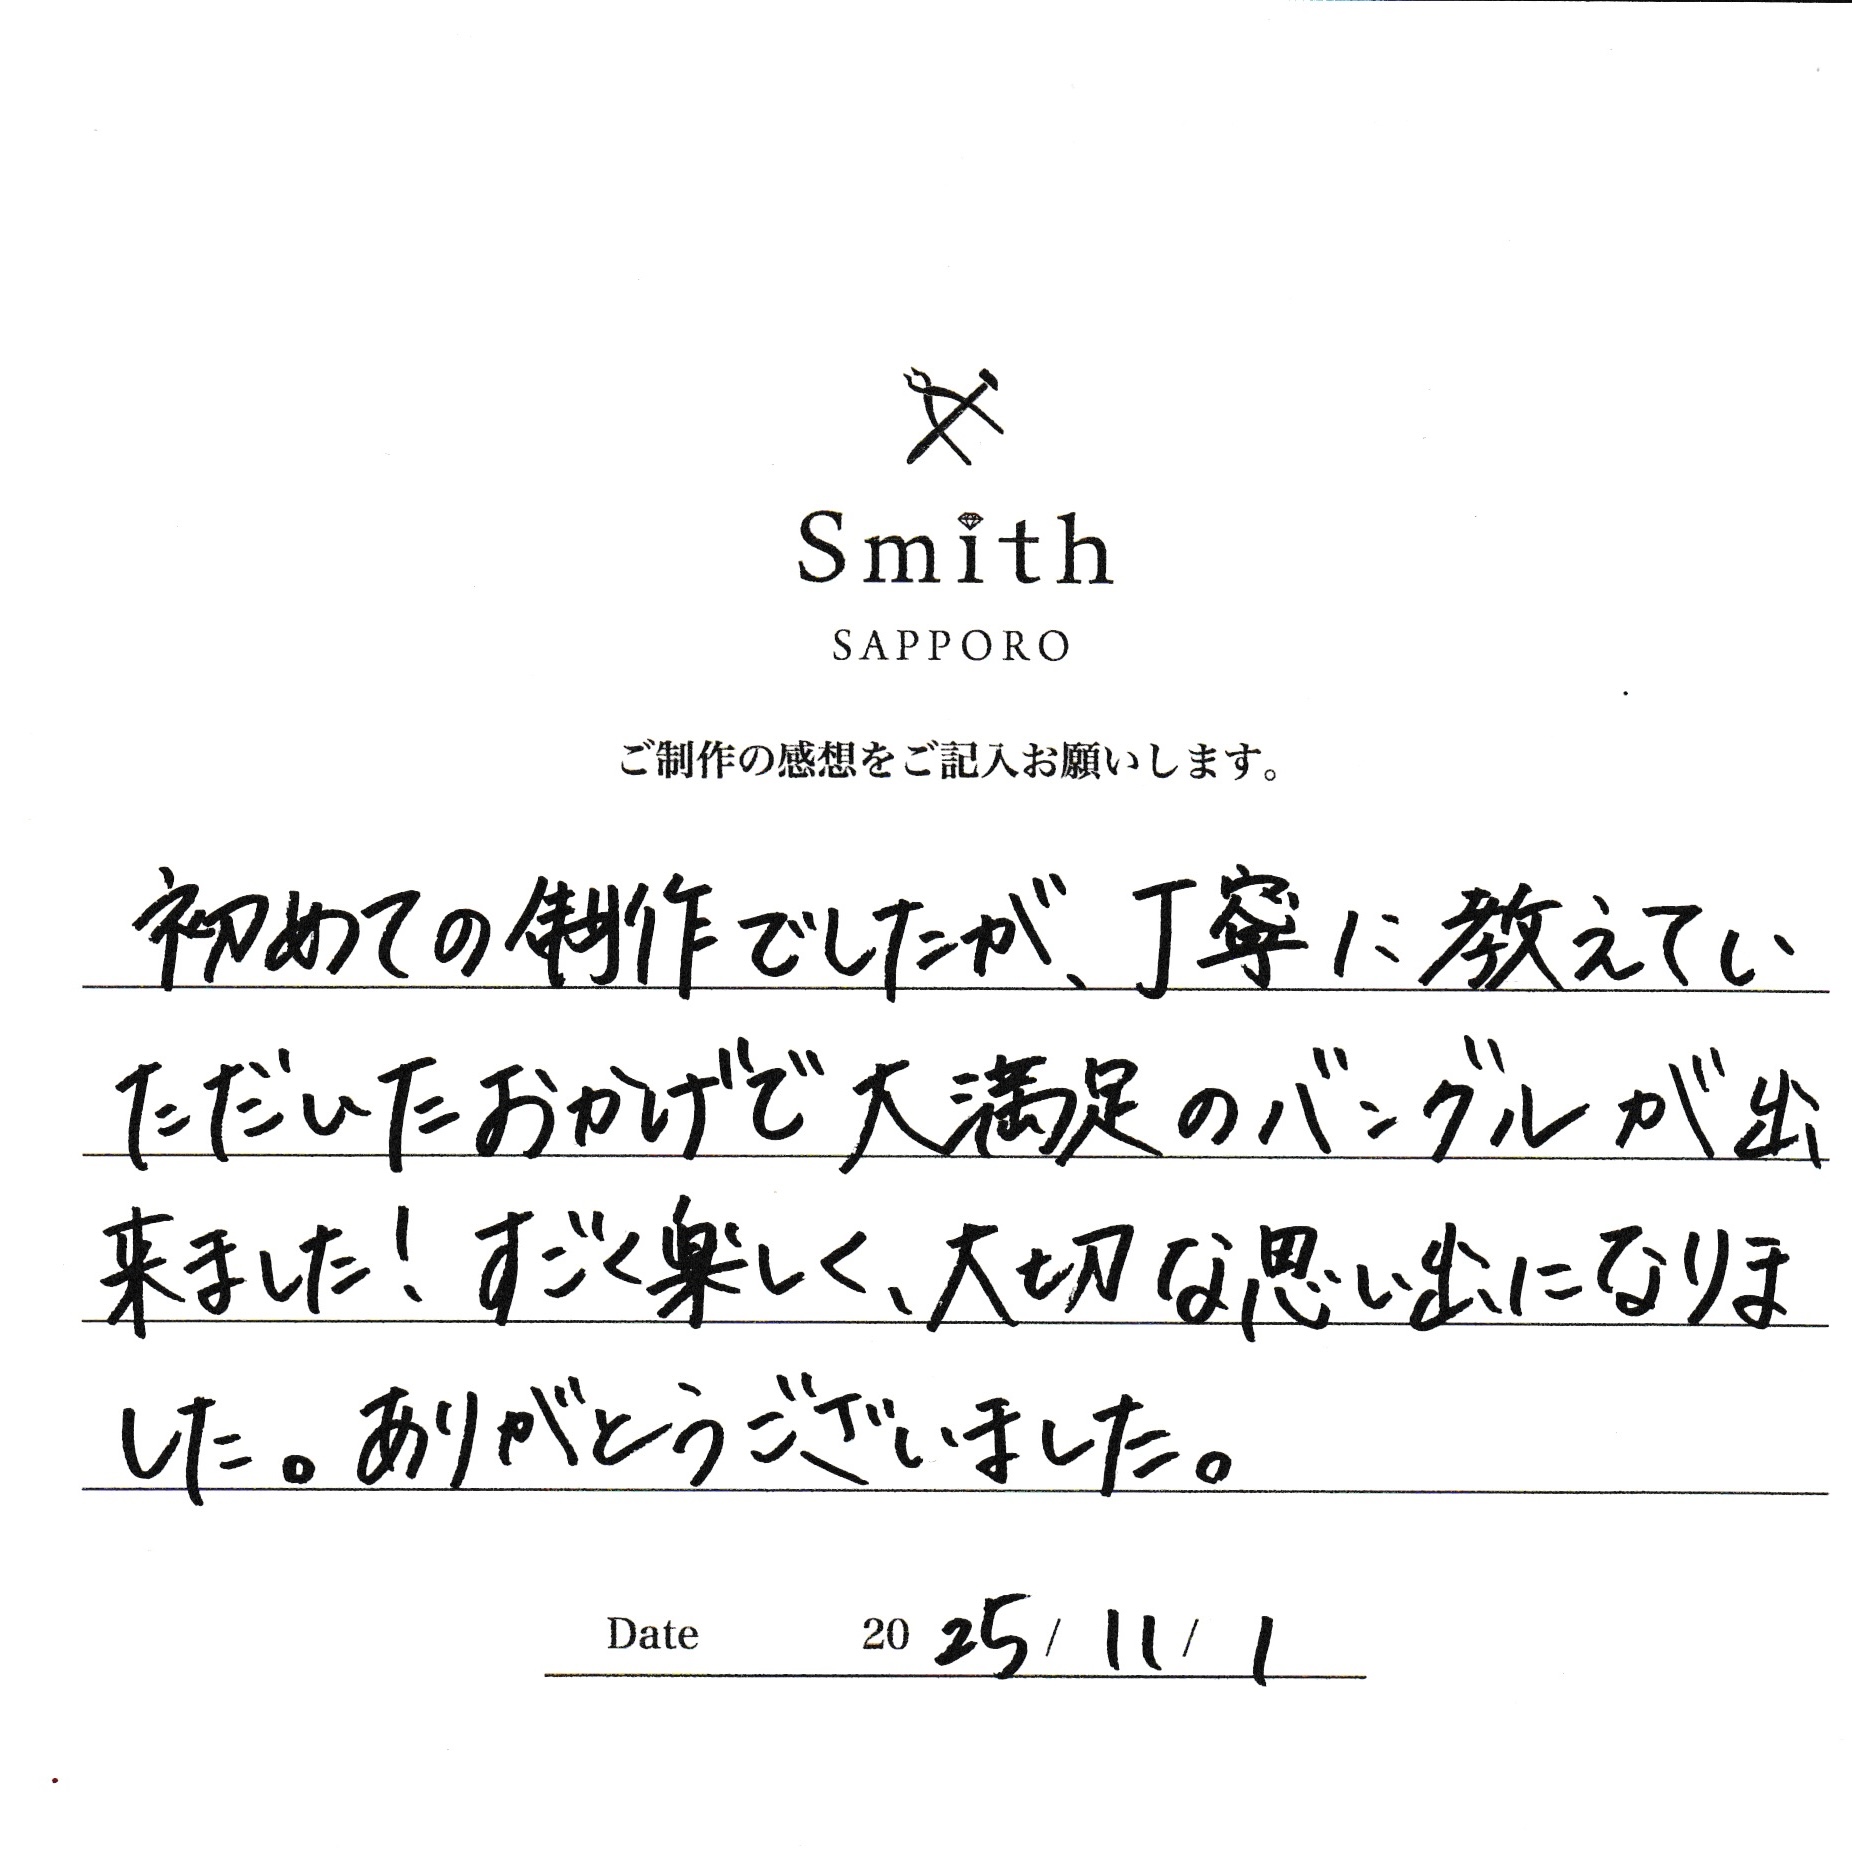 Smith
SAPPORO
ご制作の感想をご記入お願いします。
初めての制作でしたが、丁寧に教えてい
ただいたおかげで大満足のバングルが出
来ました！すごく楽しく、大切な思い出になりま
した。ありがとうございました。
Date 2025/11/1